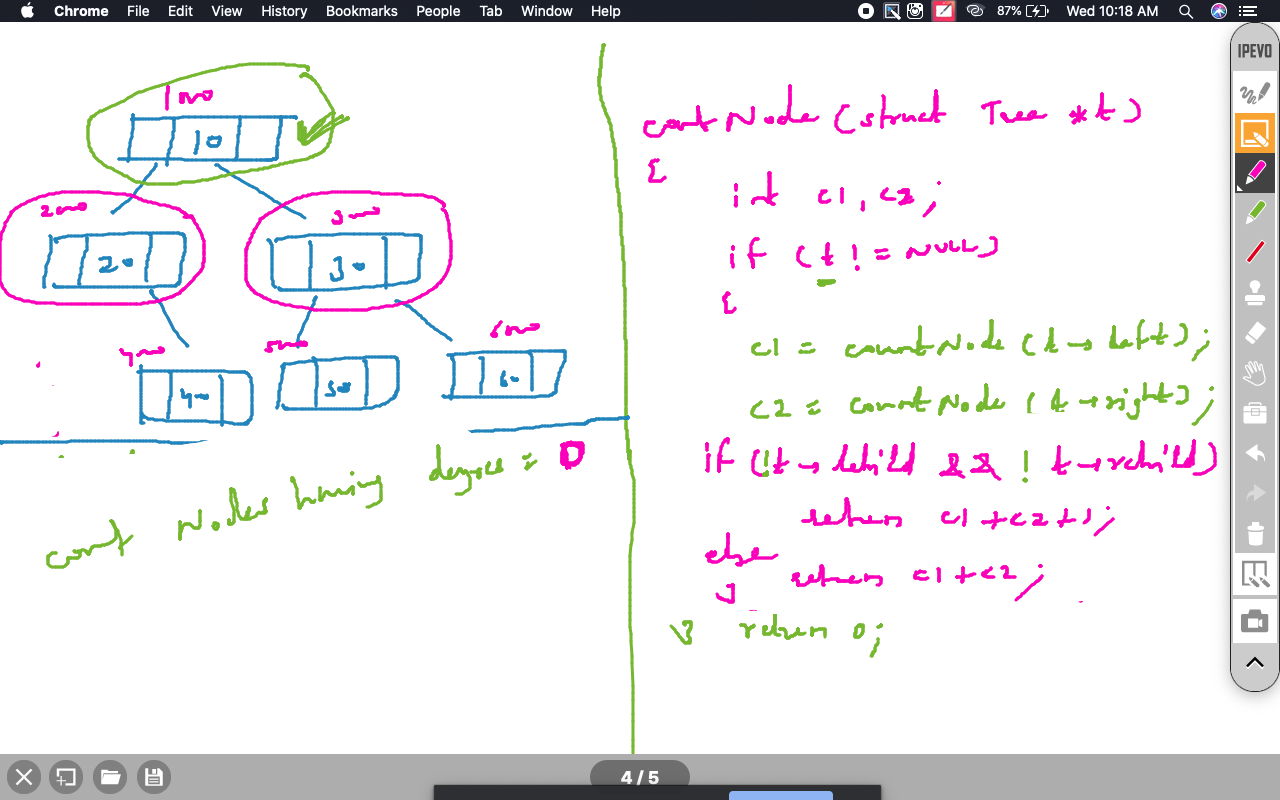 Chrome File Edit View History Bookmarks People Tab Window Help 87% Wed 10:18 AM
IPEVO
1000
10
2000
3000
20
30
4000
5000
6000
40
50
60
count Nodes having degree = 0
countNode (struct Tree *t)
{
int c1, c2;
if (t != NULL)
{
c1 = countNode (t → left);
c2 = countNode (t → right);
if (!t → lchild && ! t → rchild)
return c1 + c2 + 1;
else
return c1 + c2;
}
} return 0;
4 / 5